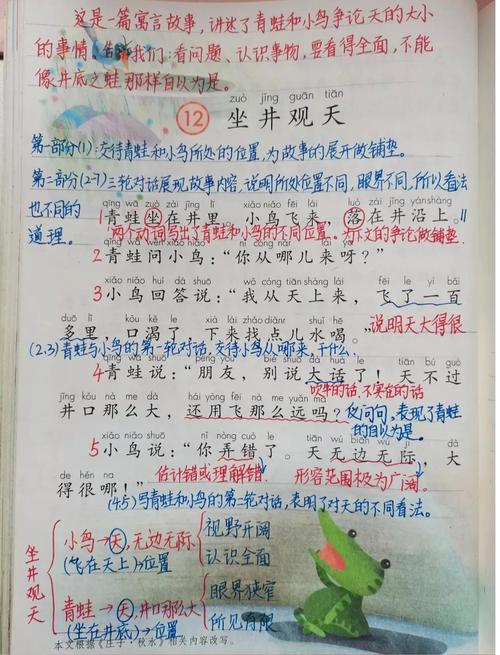 这是一篇寓言故事，讲述了青蛙和小鸟争论天的大小
的事情。告诉我们：看问题、认识事物，要看得全面，不能
像井底之蛙那样自以为是。
zuò jǐng guān tiān
12 坐井观天
第一部分(1):交待青蛙和小鸟所处的位置，为故事的展开做铺垫。
第二部分(2-7)三轮对话展现故事内容，说明所处位置不同，眼界不同，所以看法
也不同的
道理。
qīng wā zuò zài jǐng lǐ xiǎo niǎo fēi lái luò zài jǐng yán shàng
1青蛙坐在井里。小鸟飞来，落在井沿上。
两个动词写出了青蛙和小鸟的不同位置。为下文的争论做铺垫.
qīng wā wèn xiǎo niǎo nǐ cóng nǎr lái ya
2青蛙问小鸟：“你从哪儿来呀？”
xiǎo niǎo huí dá shuō wǒ cóng tiān shàng lái fēi le yì bǎi
3小鸟回答说：“我从天上来，飞了一百
duō lǐ kǒu kě le xià lái zhǎo diǎnr shuǐ hē
多里，口渴了，下来找点儿水喝。”
说明天大得很
(2.3)青蛙与小鸟的第一轮对话.交待小鸟从哪来，干什么.
qīng wā shuō péng you bié shuō dà huà le tiān bú guò
4青蛙说：“朋友，别说大话了！天不过
吹牛的话.不实在的话
jǐng kǒu nà me dà hái yòng fēi nà me yuǎn ma
井口那么大，还用飞那么远吗？”
反问句，表现了青蛙
的自以为是。
xiǎo niǎo shuō nǐ nòng cuò le tiān wú biān wú jì dà
5小鸟说：“你弄错了。天无边无际，大
估计错或理解错 形容范围极为广阔。
de hěn na
得很哪！”
(4.5)写青蛙和小鸟的第二轮对话，表明了对天的不同看法。
坐井观天
小鸟→天，无边无际 视野开阔
(飞在天上)→位置 认识全面
青蛙→天，井口那么大 眼界狭窄
(坐在井底)→位置 所见有限
本文根据《庄子·秋水》相关内容改写。